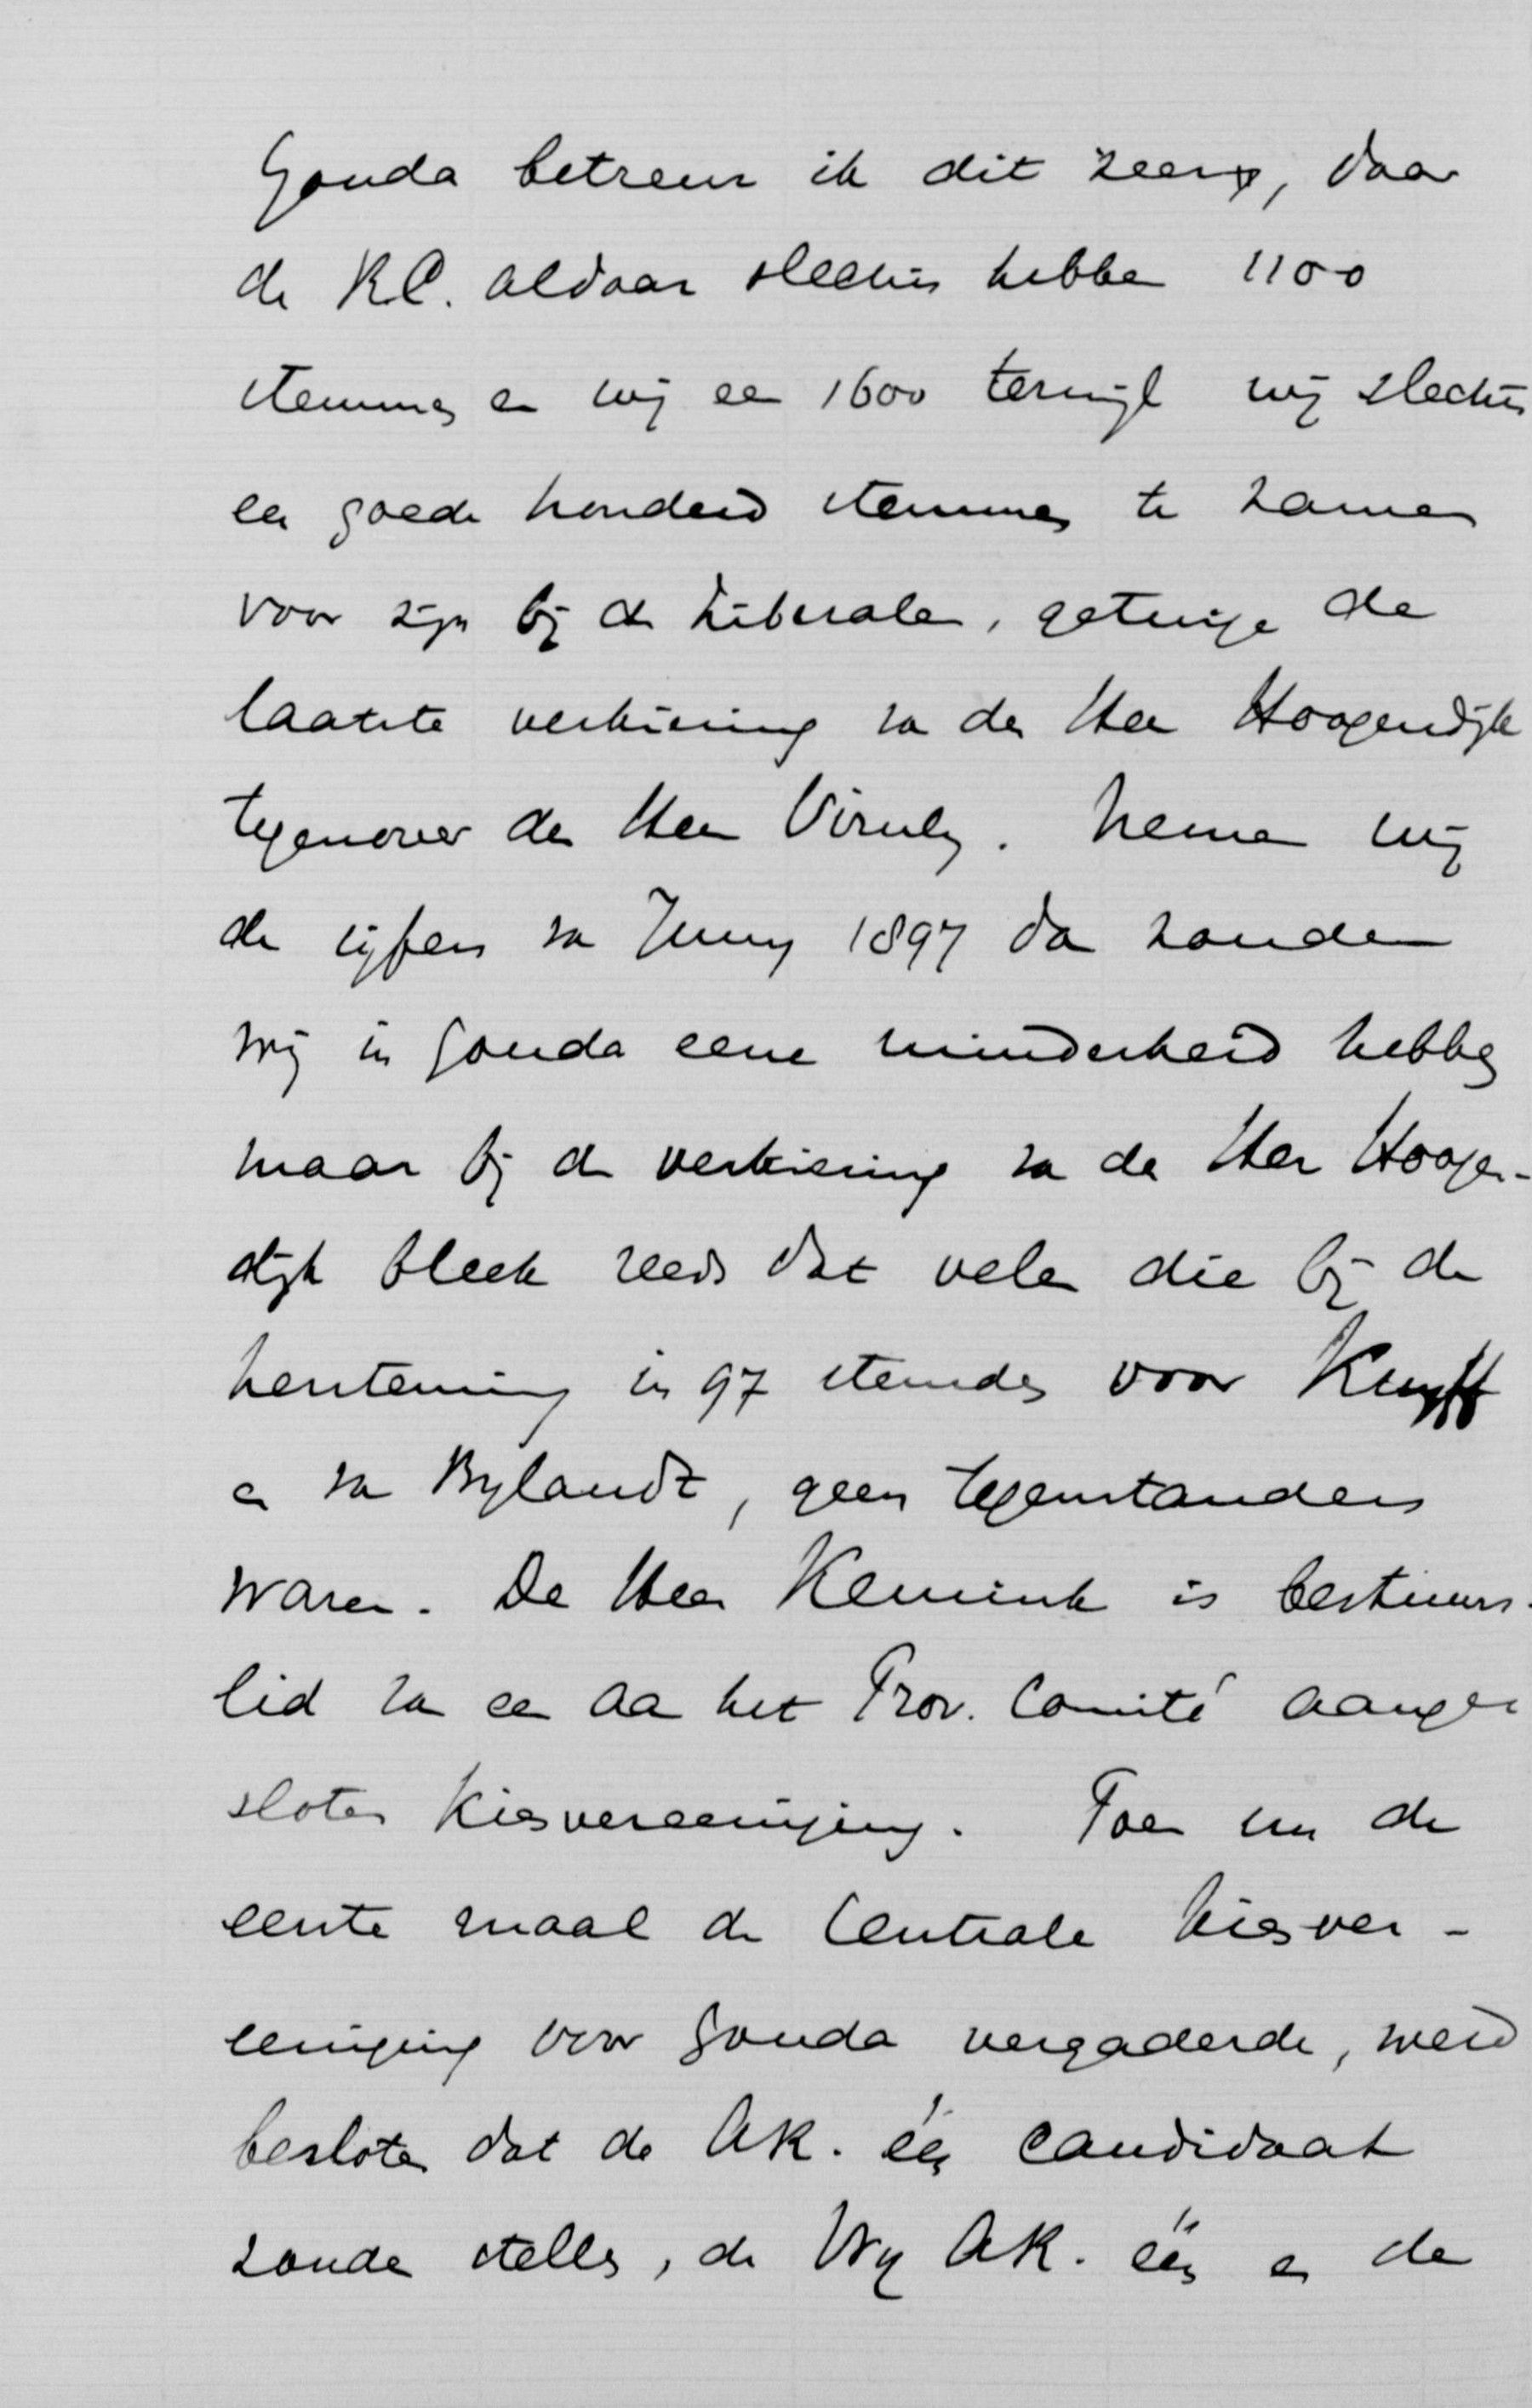 Gouda betreur ik dit zeer, daar
de R.C. aldaar slechts hebben 1100
stemmen en wij een 1600 terwijl wij slechts
een goede honderd stemmen te zamen
voor zijn bij de Liberalen, getuige de
laatste verkiezing van den Heer Hoogendijk
tegenover den Heer Viruly. Nemen wij
de cijfers van Juny 1897 dan zouden
wij in Gouda eene minderheid hebben
maar bij de verkiezing van den Heer Hoogen-
dijk bleek reeds dat velen die bij de
herstemming in 97 stemden voor
en van Bylandt, geen tegenstanders
waren. De Heer Kemink is bestuurs-
lid van een aan het Prov. Comité aange
sloten Kiesvereeniging. Toen nu de
eerste maal de Centrale Kiesver-
eeniging voor Gouda vergaderde, werd
besloten dat de AR. één candidaat
zouden stellen, de Vrij AR. één en de